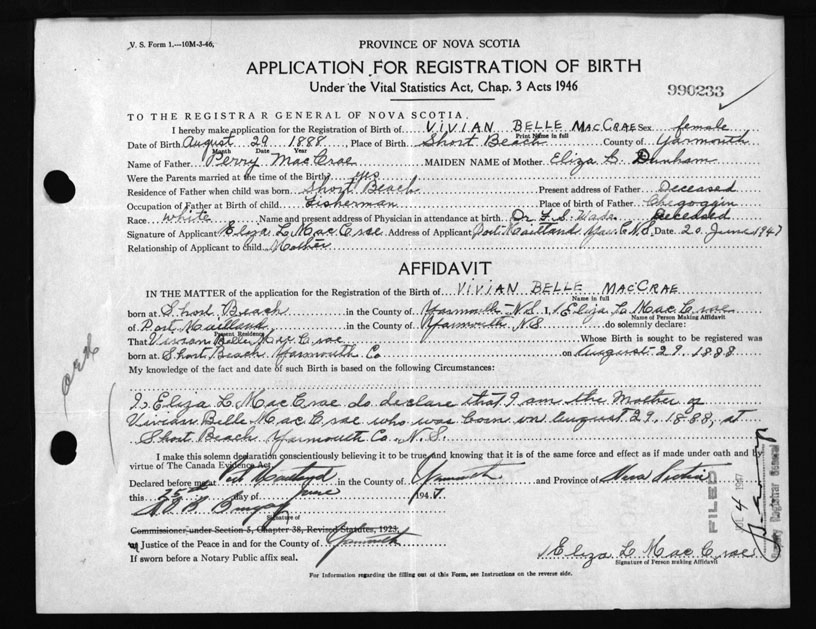 V. S. Form 1.—10M-3-46.
PROVINCE OF NOVA SCOTIA
APPLICATION FOR REGISTRATION OF BIRTH
Under the Vital Statistics Act, Chap. 3 Acts 1946
990233
TO THE REGISTRAR GENERAL OF NOVA SCOTIA.
I hereby make application for the Registration of Birth of VIVIAN BELLE MACCRAE Sex female
Print Name in full
Date of Birth August 29 1888 Place of Birth Short Beach County of Yarmouth
Month Date Year
Name of Father Perry MacCrae MAIDEN NAME of Mother Eliza L. Dunham
Were the Parents married at the time of the Birth? yes
Residence of Father when child was born Short Beach Present address of Father Deceased
Occupation of Father at Birth of child Fisherman Place of birth of Father Chegoggin
Race white Name and present address of Physician in attendance at birth Dr. Deceased
Signature of Applicant Eliza L MacCrae Address of Applicant Port Maitland Yar. Co. N.S. Date 20 June 1947
Relationship of Applicant to child Mother
AFFIDAVIT
IN THE MATTER of the application for the Registration of the Birth of VIVIAN BELLE MACCRAE
Name in full
born at Short Beach in the County of Yarmouth N.S. I, Eliza L MacCrae
Name of Person Making Affidavit
of Port Maitland in the County of Yarmouth N.S. do solemnly declare:
Present Residence
That Vivian Belle MacCrae Whose Birth is sought to be registered
born at Short Beach Yarmouth Co on August 29, 1888
My knowledge of the fact and date of such Birth is based on the following Circumstances:
I, Eliza L. MacCrae do declare that I am the Mother of
Vivian Belle MacCrae who was born on August 29, 1888, at
Short Beach Yarmouth Co. N.S.
I make this solemn declaration conscientiously believing it to be true and knowing that it is of the same force and effect as if made under oath and by
virtue of The Canada Evidence Act.
Declared before me at Port Maitland in the County of Yarmouth and Province of Nova Scotia
this 25th day of June 1947.
Signature of
Commissioner, under Section 5, Chapter 38, Revised Statutes, 1923,
or Justice of the Peace in and for the County of Yarmouth
If sworn before a Notary Public affix seal.
Eliza L MacCrae
Signature of Person making Affidavit
For information regarding the filling out of this Form, see Instructions on the reverse side.
FILED
4 1947
Registrar General